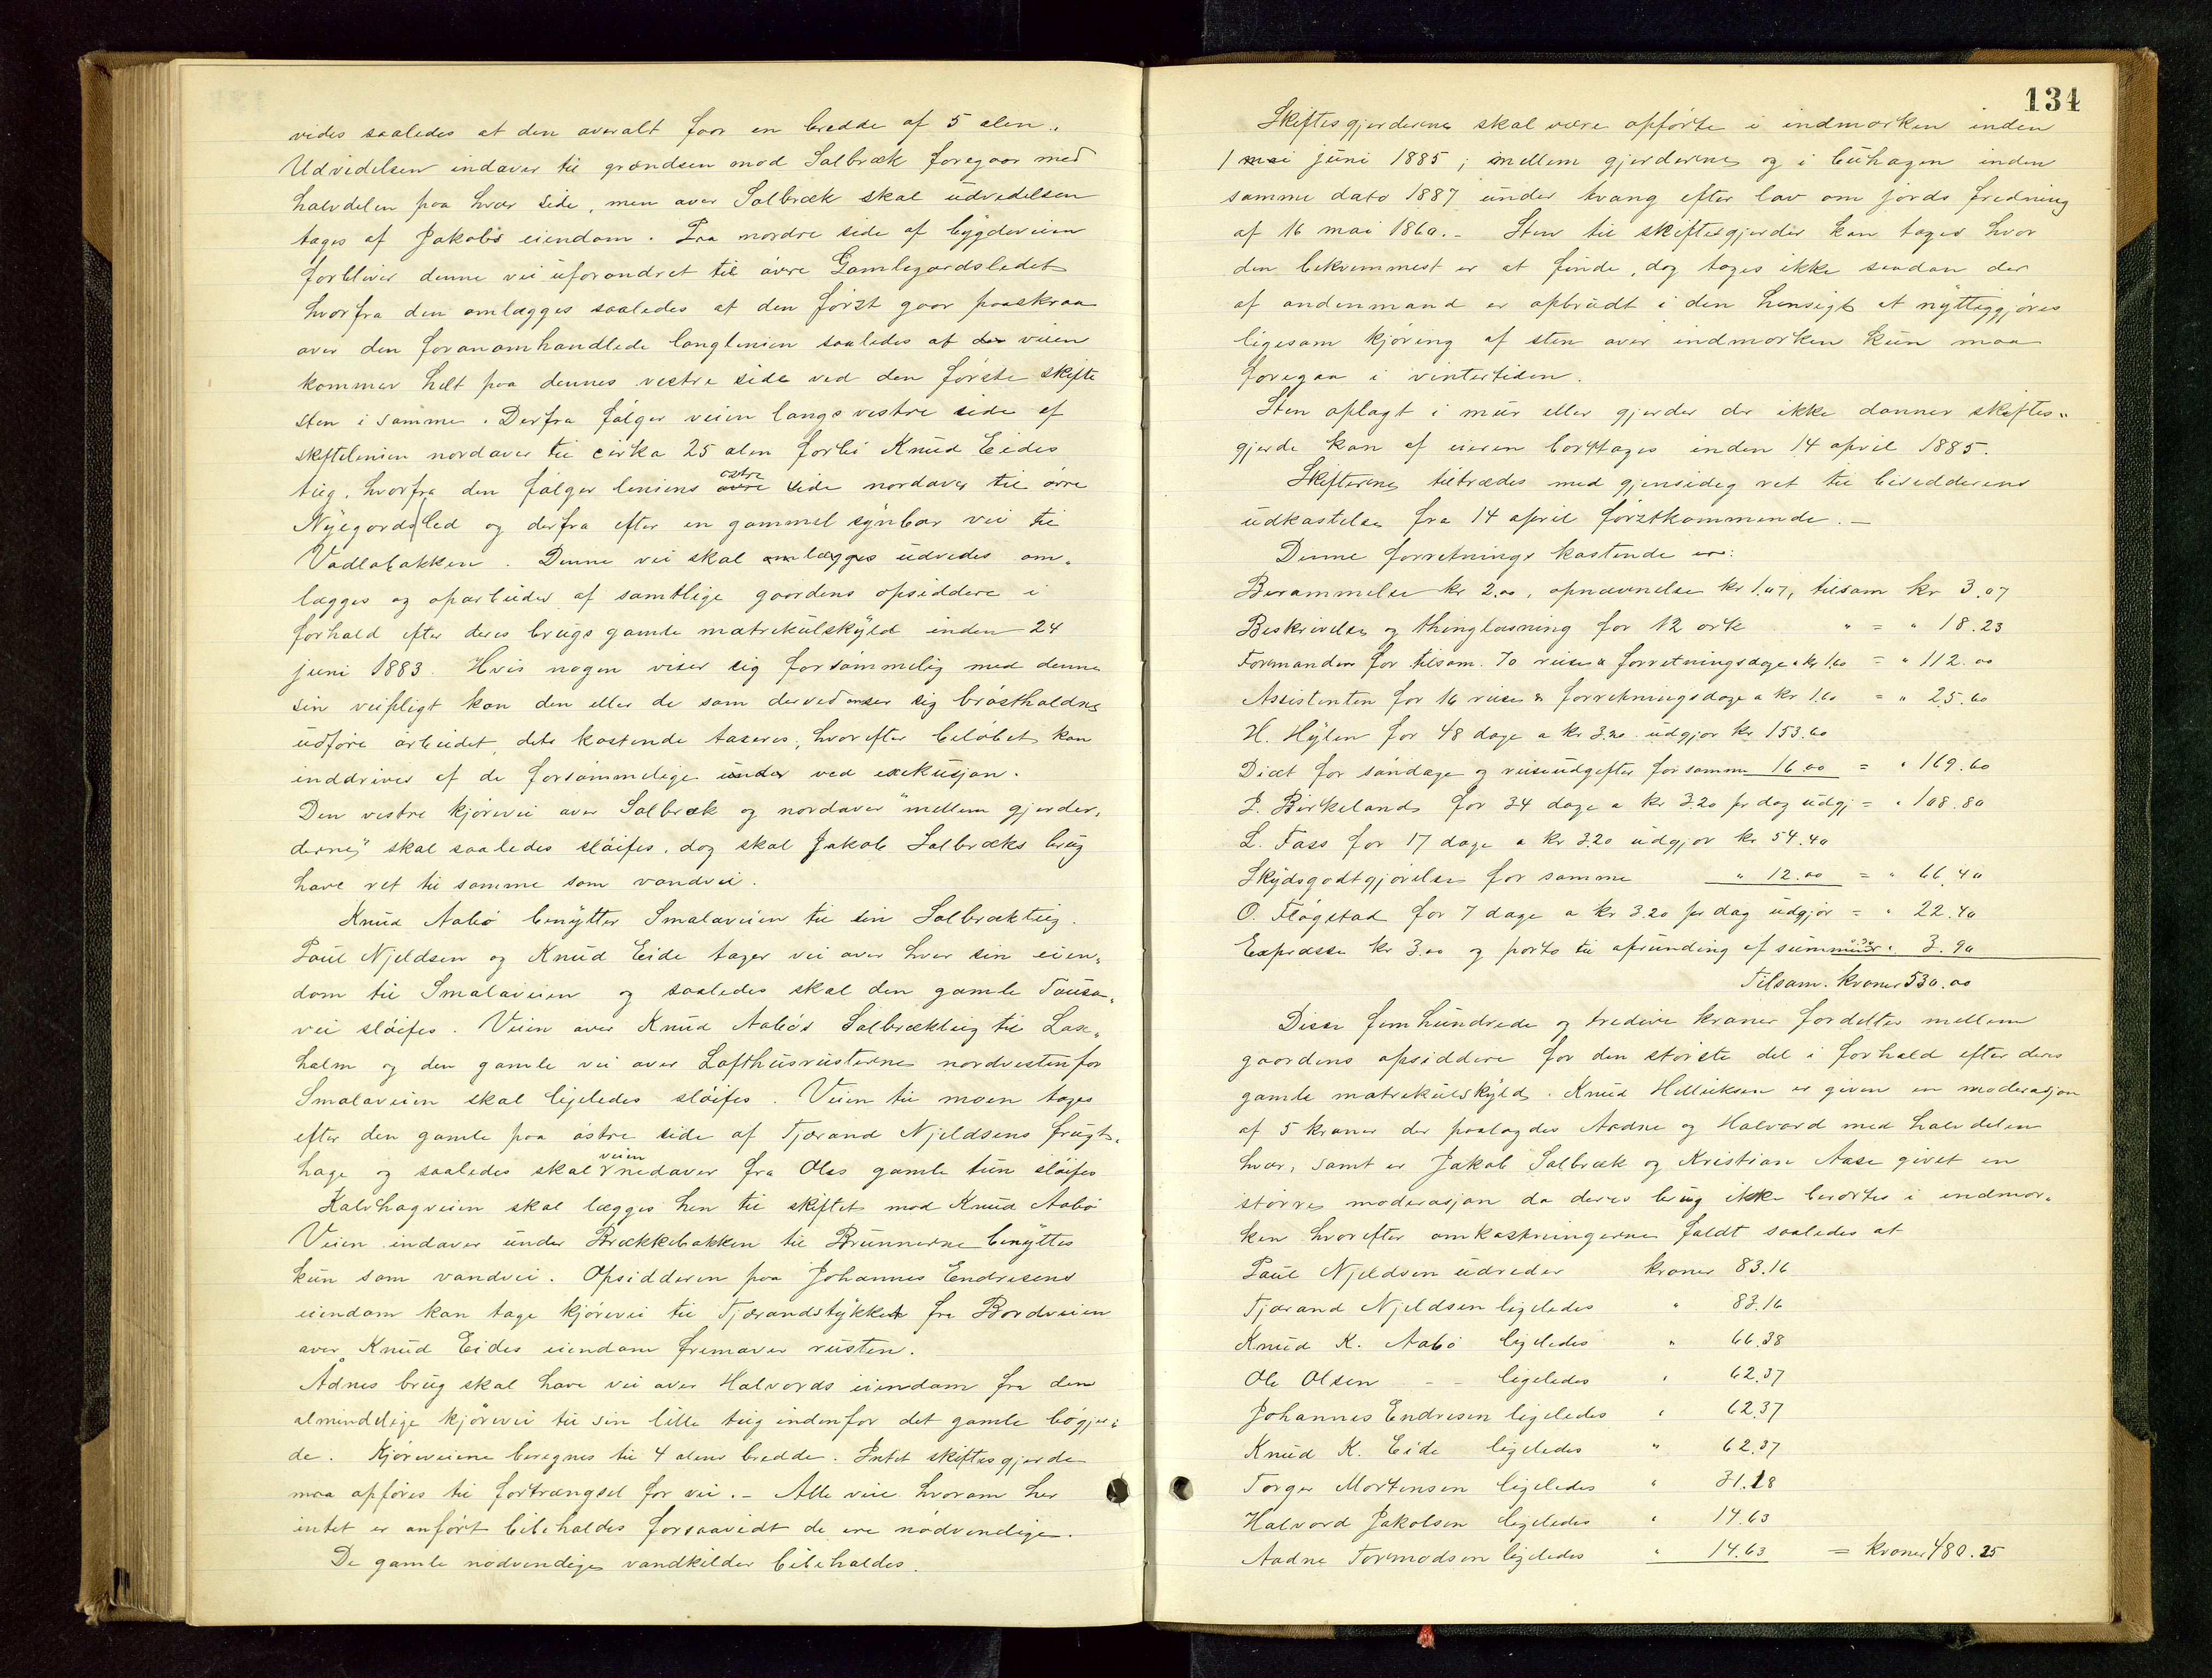 vides saaledes at den overalt faar en bredde af 5 alen.
Udvidelsen indover til grændsen mod Solbræk foregaar med
halvdelen paa hver side, men over Solbræk skal udvidelsen
tages af Jakobs eiendom. Fra nordre side af bygdeveien
forbliver denne vei uforandret til øvre Gamlegardsledet
hvorfra den omlægges saaledes at den først gaar paaskraa
over den foranomhandlede langlinien saaledes at den veien
kommer helt paa dennes vestre side ved den første skifte
sten i samme. Derfra følger veien langs vestre side af
skiftelinien nordover til cirka 25 alen forbi Knud Eides
teig, hvorfra den følger liniens østre side nordover til øvre
Nyegards led og derfra efter en gammel synbar vei til
Vadlabakken. Denne vei skal omlægges udvides om-
lægges og oparbeides af samtlige gaardens opsiddere i
forhold efter deres brugs gamle matrikulskyld inden 24
juni 1883. Hvis nogen viser sig forsømmelig med denne
sin veipligt kan den eller de som derved anser sig brøstholdne
udføre arbeidet, dets kostende taxeres, hvorefter beløbet kan
inddrives af de forsømmelige under ved exekusjon.
Den vestre kjørevei over Solbræk og nordover "mellem gjerder-
derne" skal saaledes sløifes, dog skal Jakob Solbræks brug
have ret til samme som vandvei.
Knud Aabø benytter Smalaveien til sin Solbrækteig.
Poul Njeldsen og Knud Eide tager vei over hver sin eien-
dom til Smalaveien og saaledes skal den gamle Tausa-
vei sløifes. Veien over Knud Aabøs Solbrækteig til Lax-
holm og den gamle vei over Lofthusrusterne nordvestenfor
Smalaveien skal ligeledes sløifes. Veien til moen tages
efter den gamle paa østre side af Tjærand Njeldsens frugt-
hage og saaledes skal veien nedover fra Oles gamle tun sløifes
Kalvhagveien skal lægges hen til skiftet mod Knud Aabø
Veien indover under Brækkebakken til Brunnerne benyttes
kun som vandvei. Opsidderen paa Johannes Endresens
eiendom kan tage kjørevei til Tjærandstykket fra Bordveien
over Knud Eides eiendom fremover rusten.
Ådnes brug skal have vei over Halvords eiendom fra den
almindelige kjørevei til sin lille teig indenfor det gamle bøgjer-
de. Kjøreveiene beregnes til 4 alens bredde. Intet skiftesgjerde
maa opføres til fortrængsel for vei. - Alle veie hvorom her
intet er anført bibeholdes forsaavidt de ere nødvendige.
De gamle nødvendige vandkilder bibeholdes.
134
Skiftesgjerderne skal være opførte i indmarken inden
1 mai juni 1885; imellem gjerderne og i buhagen inden
samme dato 1887 under tvang efter lov om jords fredning
af 16 mai 1860. - Sten til skiftesgjerder kan tages hvor
den bekvemmest er at finde, dog tages ikke saadan der
af andenmand er opbrudt i den hensigt at nyttiggjøres
ligesom kjøring af sten over indmarken kun maa
foregaa i vintertiden.
Sten oplagt i mur eller gjerder der ikke danner skiftes-
gjerde kan af eieren borttages inden 14 april 1885.
Skifterne tiltrædes med gjensidig ret til besædderens
udkastelse fra 14 april førstkommende. -
Denne forretnings kostende er:
Berammelse kr 2.00, opnævnelse kr 1.07, tilsam kr 3.07
Beskrivelse og thinglæsning for 12 ark " = " 18.23
Formanden for tilsam. 70 reise & forretningsdage a kr 1.60 = " 112.00
Assistenten for 16 reise & forretningsdage a kr 1.60 = " 25.60
H. Hylen for 48 dage a kr 3.20 udgjør kr 153.60
Diæt for søndage og reiseudgifter for samme 16.00 = " 169.60
P. Birkelands for 34 dage a kr 3.20 pr dag udgj = " 108.80
L. Fass for 17 dage a kr 3.20 udgjør kr 54.40
Skydsgodtgjørelse for samme " 12.00 = " 66.40
O. Fløgstad for 7 dage a kr 3.20 pr dag udgjør = " 22.40
Expresse kr 3.00 og porto til afrunding af summer " 3.90
Tilsam. kroner 530.00
Disse femhundrede og tredive kroner fordeltes mellem
gaardens opsiddere for den største del i forhold efter deres
gamle matrikulskyld. Knud Helliksen er given en moderasjon
af 5 kroner der paalagdes Aadne og Halvord med halvdelen
hver, samt er Jakob Solbræk og Kristian Aase givet en
større moderasjon da deres brug ikke berørtes i indmar-
ken hvorefter omkostningerne faldt saaledes at
Poul Njeldsen udreder kroner 83.16
Tjærand Njeldsen ligeledes " 83.16
Knud K. Aabø ligeledes " 66.38
Ole Olsen - - ligeledes " 62.37
Johannes Endresen ligeledes " 62.37
Knud K. Eide ligeledes " 62.37
Torger Mortensen ligeledes " 31.18
Halvord Jakobsen ligeledes " 14.63
Aadne Tormodsen ligeledes " 14.63 = kroner 480.25